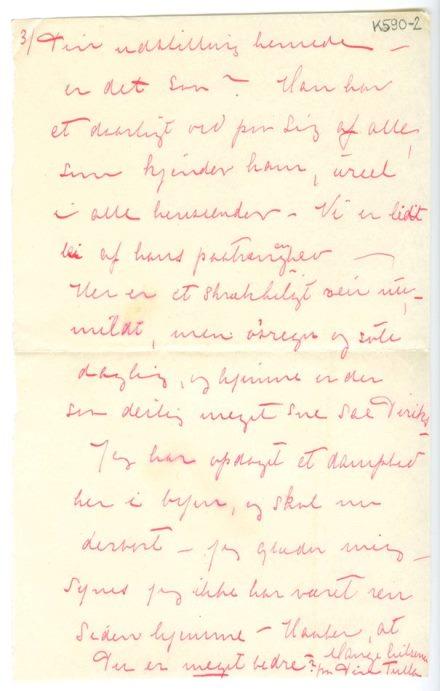 K590-2
3/ Din udstilling hernede –
er det san? Han har
et daarligt ord paa sig af alle,
som kjender ham, ureel
i alle henseender – Vi er lidt
lei af hans paatrængenhed –
Her er et skrækkeligt veir nu, –
mildt, men øsregn og søle
daglig, og hjemme er der
son deilig meget sne sae Diriks
Jeg har opdaget et dampbad
her i byen, og skal nu
derbort – jeg glæder mig –
synes jeg ikke har været ren
siden hjemme – Haaber, at
Du er meget bedre? Mange hilsener
fra Din Tulla